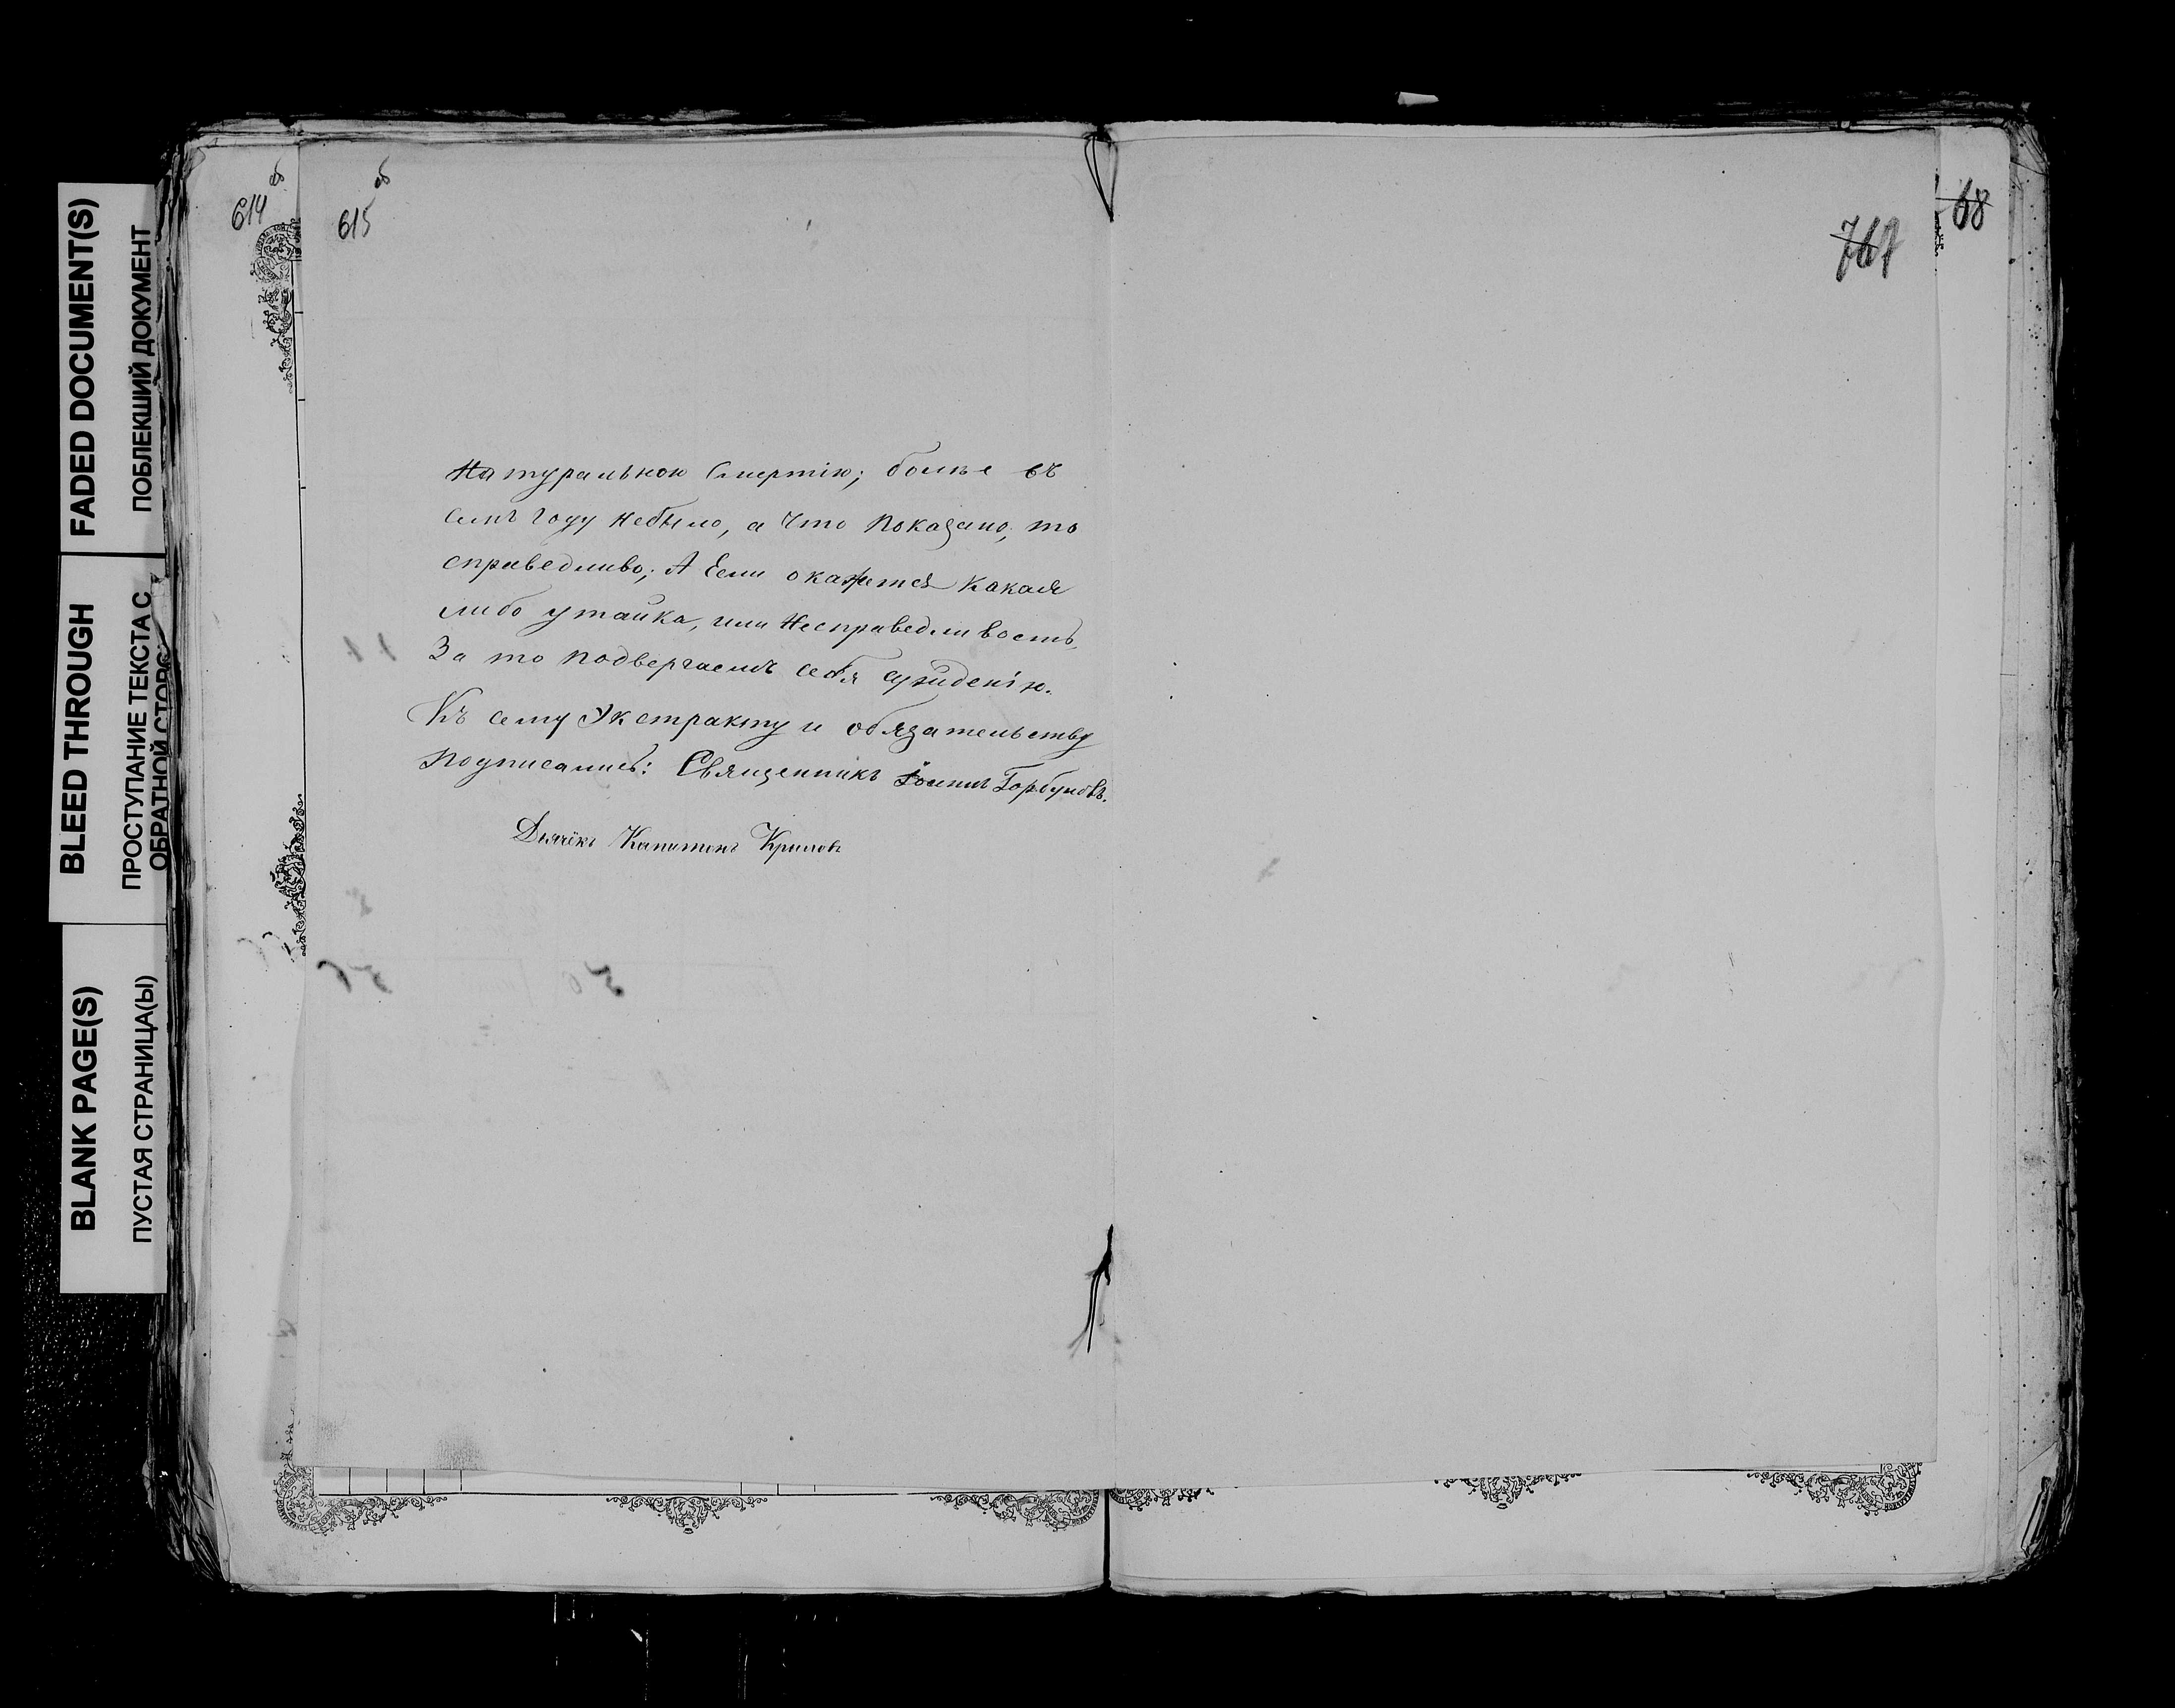 FADED DOCUMENT(S)
ПОБЛЕКШИЙ ДОКУМЕНТ
BLEED THROUGH
ПРОСТУПАНИЕ ТЕКСТА С
ОБРАТНОЙ СТОРО
BLANK PAGE(S)
ПУСТАЯ СТРАНИЦА(Ы)
614 об
615 об
Натуральною Смертію; болѣе въ
семъ году небыло, а что показано, то
справедливо; А Если окажется какая
либо утайка, или Несправедливость,
За то подвергаемъ себя сужденію.
Къ сему Экстракту и обязательству
подписались: Священникъ Іоаннъ Горбуновъ.
Дьячёкъ Капитонъ Крыловъ
767
68